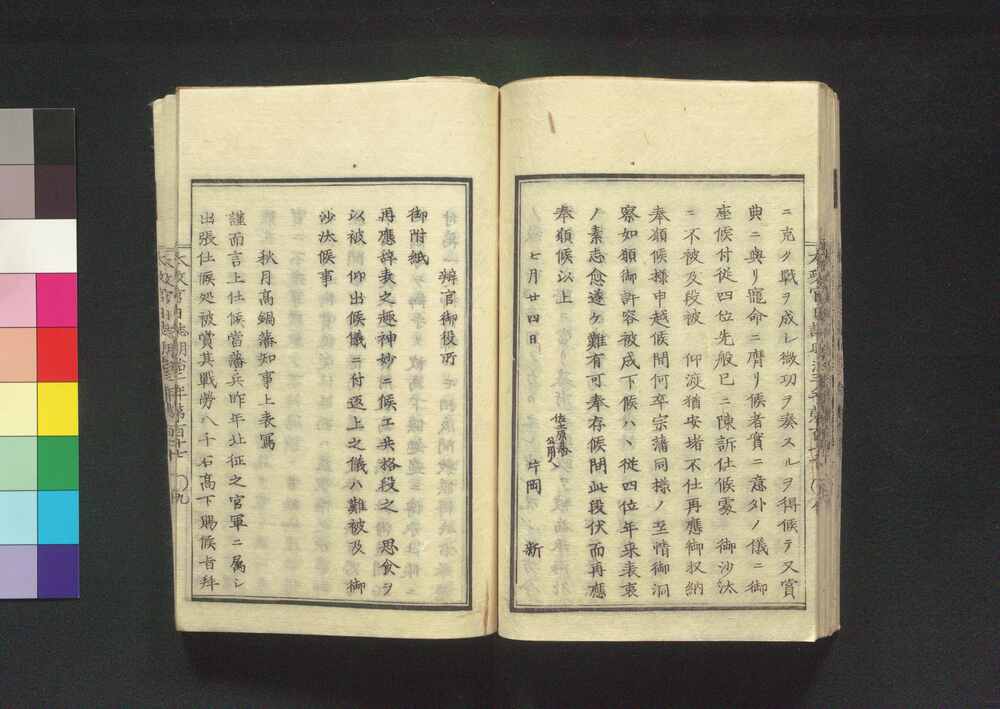 ニ克ク戰ヲ成シ微功ヲ奏スルヲ得候テ又賞
典ニ與リ寵命ニ膺リ候者實ニ意外ノ儀ニ御
座候付従四位先般已ニ陳訴仕候處 御沙汰
ニ不被及段被 仰渡猶安堵不仕再應御収納
奉願候様申越候間何卒宗藩同様ノ至情御洞
察如願御許容被成下候ハヽ従四位年来表衷
ノ素志愈遂ケ難有可奉存候間此段伏而再應
奉願候以上
七月廿四日 佐土原藩公用人 片岡 新
辨官御役所
御附紙
再應辞表之趣神妙ニ候エ共格段之 思食ヲ
以被 仰出候儀ニ付返上之儀ハ難被及 御
沙汰候事
秋月高鍋藩知事上表寫
謹而言上仕候當藩兵昨年北征之官軍ニ属シ
出張仕候処被賞其戰勞八千石高下賜候旨拜
太政官日誌明治二年第百十七 ○九